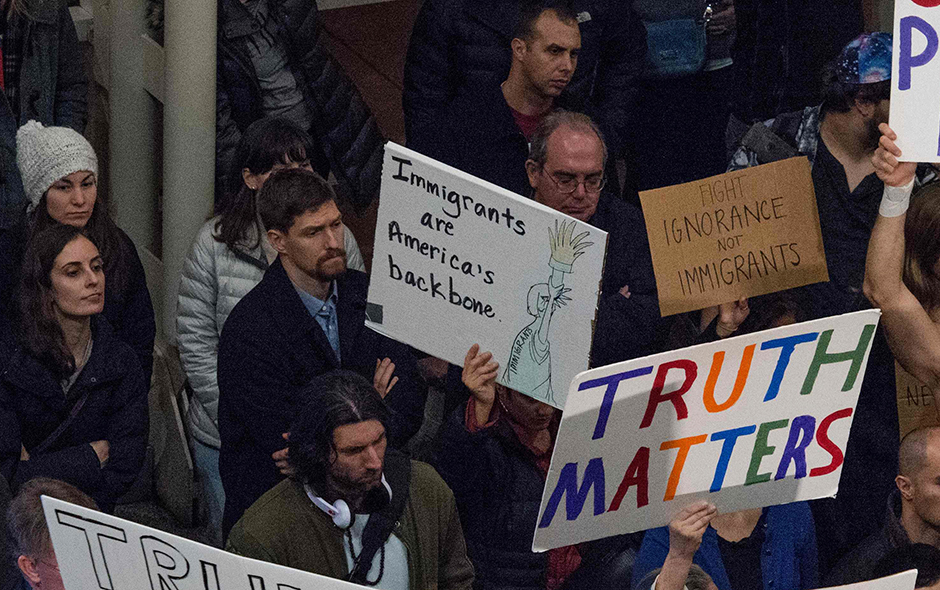 Immigrants
are
America's
backbone.
IMMIGRANTS
FIGHT
IGNORANCE
NOT
IMMIGRANTS
TRUTH
MATTERS
TRU
P
NE